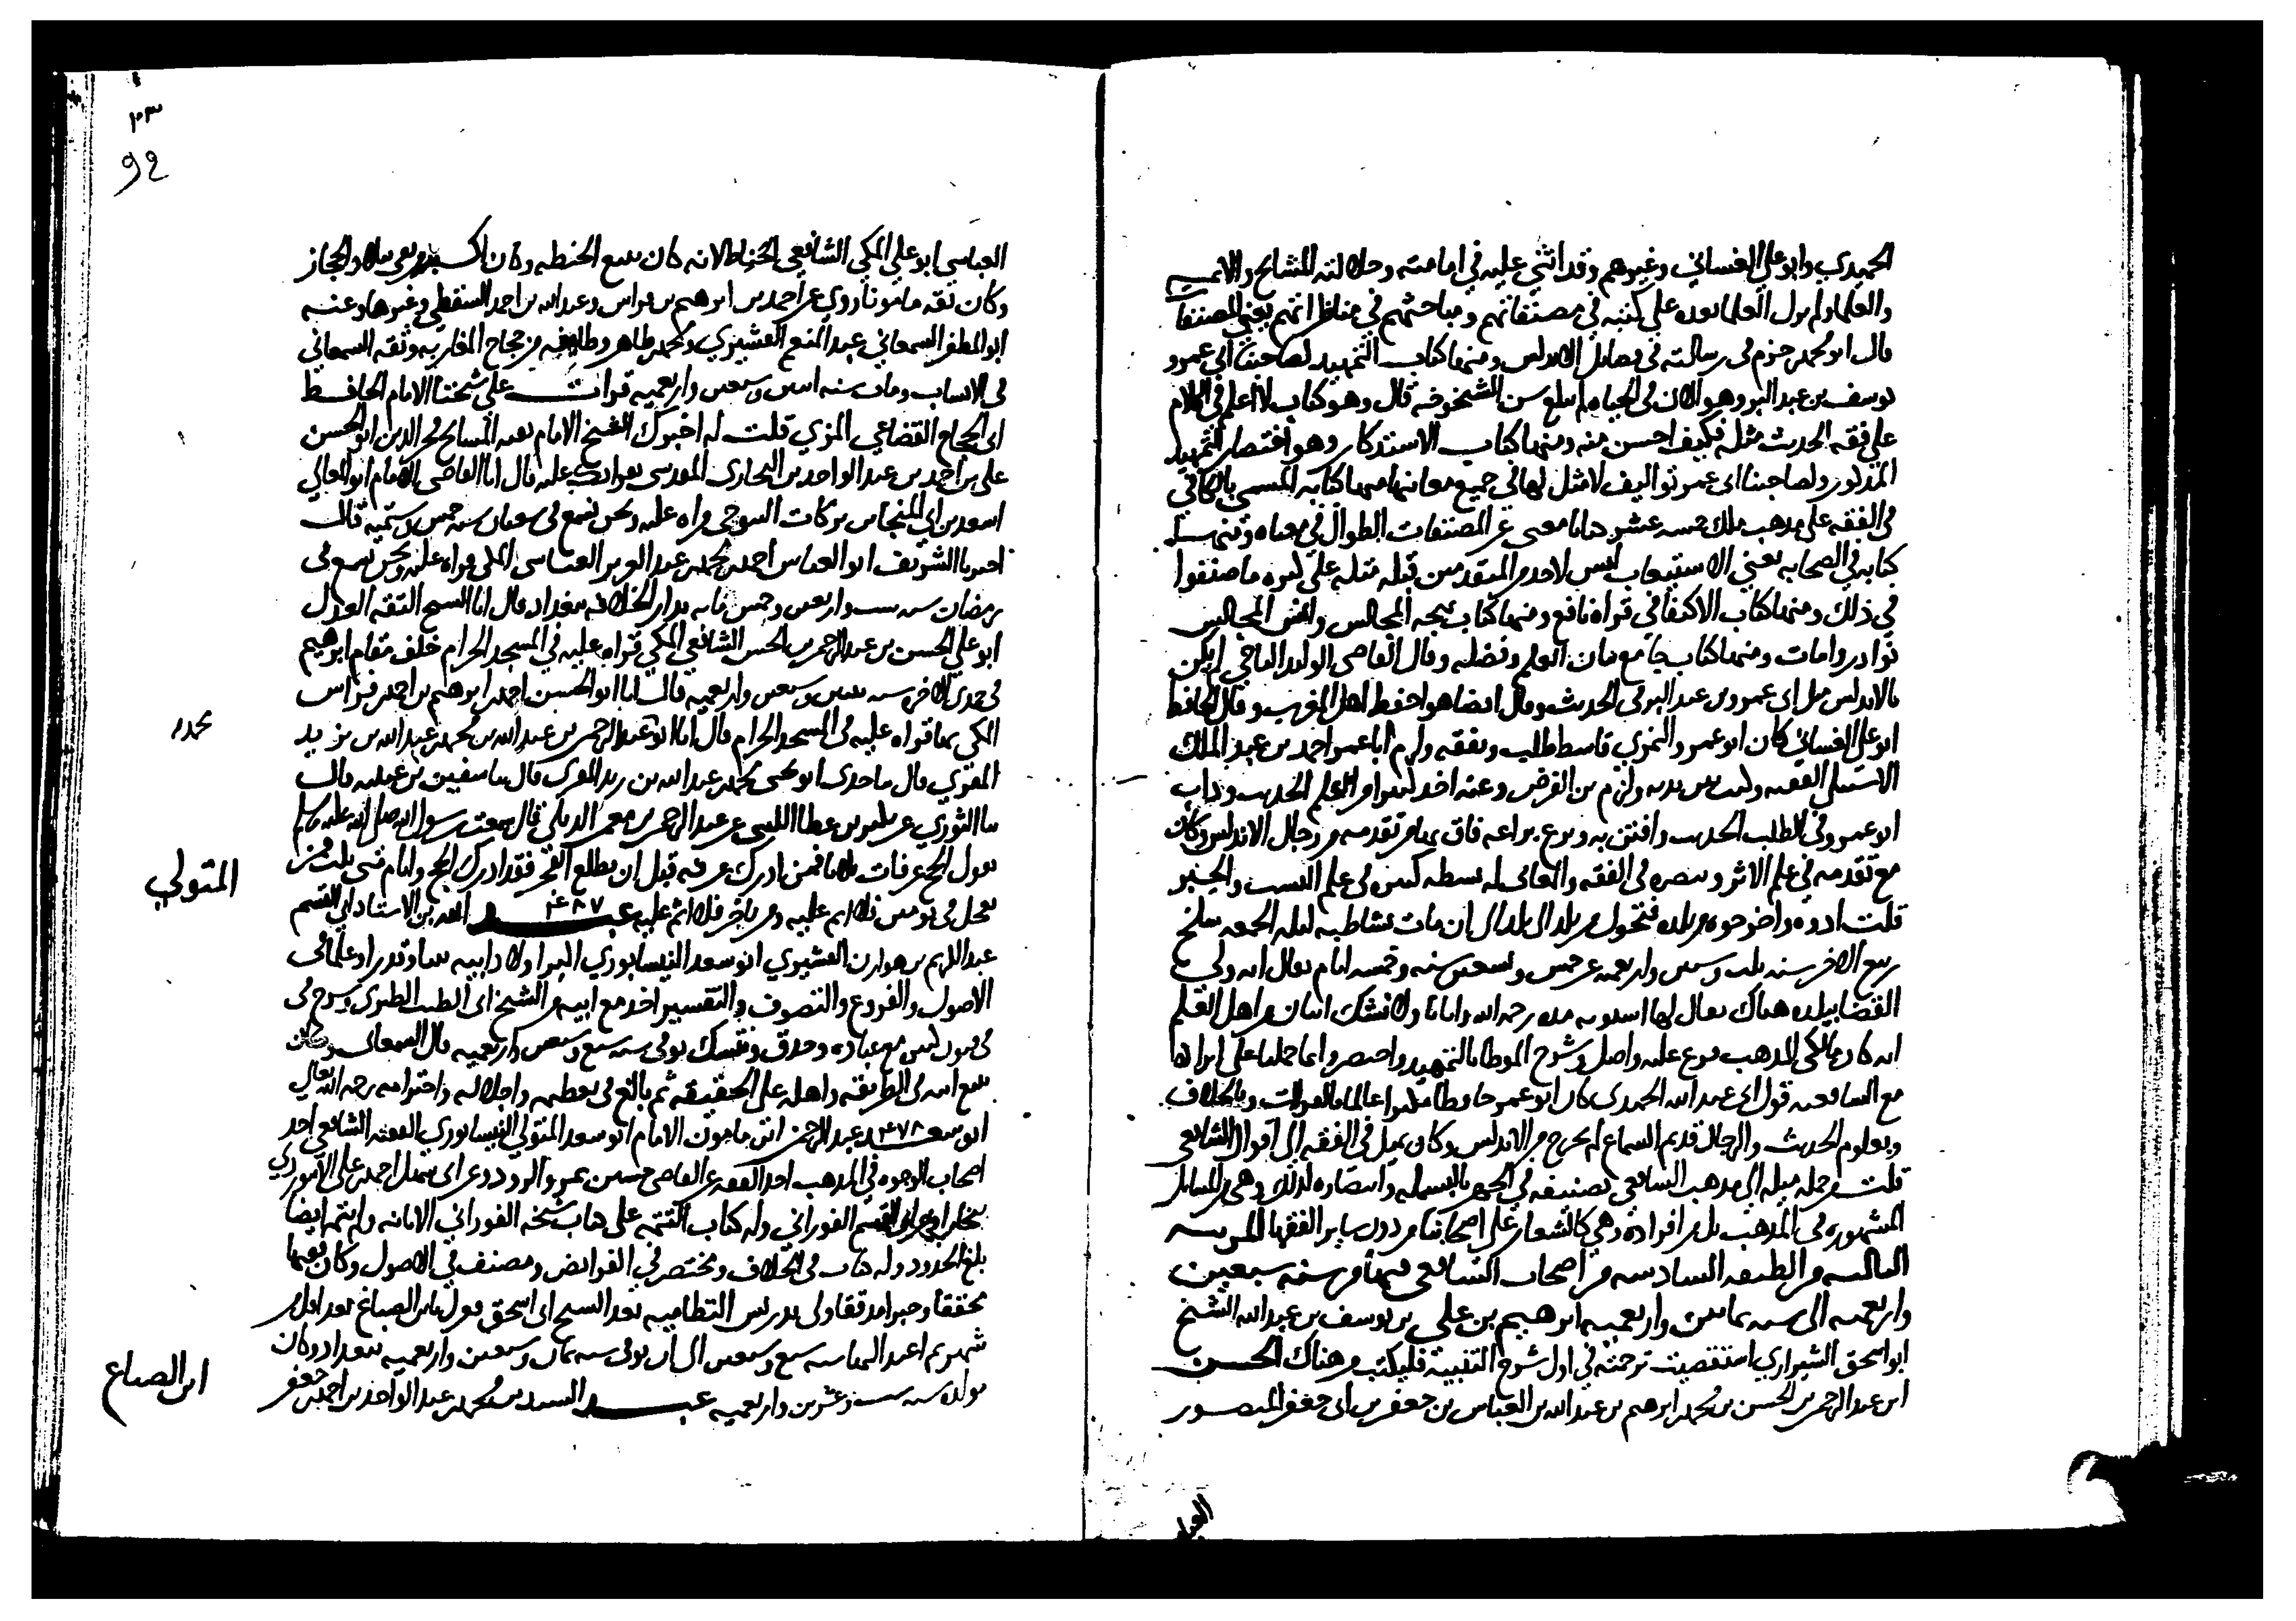 الحميدي وابو علي الغساني وغيرهم وقد اثني عليه في امامته وجلالته المشايخ والايمه
والعلما ولم يزل العلما بعده علي كتبه في مصنفاتهم ومباحثهم في مناظراتهم يعني المصنفات
قال ابو محمد حزم في رسالته في فضايل الاندلس ومنها كتاب التمهيد لصاحبنا ابي عمرو
يوسف بن عبد البر وهو الان في الحياه لم يبلغ سن الشيخوخه قال وهو كتاب لا اعلم في الكلام
علي فقه الحديث مثله فكيف احسن منه ومنها كتاب الاستذكار وهو اختصار التمهيد
المذكور ولصاحبنا ابي عمر تواليف لا مثل لها في جميع معانيها منها كتابه المسمي بالكافي
في الفقه علي مذهب ملك خمسه عشر كتابا مغني عن المصنفات الطوال في معناه ومنها
كتابه في الصحابه يعني الاستيعاب ليس لاحد من المتقدمين قبله مثله علي كثره ما صنفوا
في ذلك ومنها كتاب الاكتفا في قراه نافع ومنها كتاب بهجه المجالس وانس المجالس
نوادر وابيات ومنها كتاب جامع بيان العلم وفضله وقال القاضي ابو الوليد الباجي لم يكن
بالاندلس مثل ابي عمرو بن عبد البر في الحديث وقال ايضا هو احفظ اهل المغرب وقال الحافظ
ابو علي الغساني كان ابو عمرو النمري قاسط طلب وتفقه ولزم ابا عمر احمد بن عبد الملك
الاشبيلي الفقيه وكتب بين يديه ولزم بن الفرضي وعنه اخذ كثيرا من علم الحديث وداب
ابو عمرو في طلب الحديث وافتن به وبرع براعه فاق بها من تقدمه من رجال الاندلس وكان
مع تقدمه في علم الاثر وبصره في الفقه والمعاني له بسطه كبيره في علم النسب والخبر
قلت اذوه واخرجوه من بلده فتحول من بلد الي بلد الي ان مات بشاطبه ليله الجمعه سلخ
ربيع الاخر سنه ثلث وستين واربعمه عن خمس وتسعين سنه وخمسه ايام يقال انه ولي
القضا ببلده هناك يقال لها اشبونه مده رحمه الله وايانا ولا نشك انسان من اهل العلم
انه كان مالكي المذهب فرع عليه واصل وشرح الموطا بالتمهيد واختصره وانما حملنا علي ايرادها
مع الشافعيه قول ابي عبد الله الحميدي كان ابو عمر حافظا مكثرا عالما بالقراات وبالخلاف
وبعلوم الحديث والرجال قديم السماع لم يخرج من الاندلس وكان يميل في الفقه الي اقوال الشافعي
قلت من جمله ميله الي مذهب الشافعي تصنيفه في الجهر بالبسمله وانتصاره لذلك وهي من المسايل
المشهوره في المذهب بل من افراده وهي كالشعار علي اصحابنا من دون ساير الفقها المرتبه
الثالثه من الطبقه السادسه من اصحاب الشافعي فيها من سنه سبعين
واربعمه الي سنه ثمانين واربعميه ابرهيم بن علي بن يوسف بن عبد الله الشيخ
ابو اسحق الشيرازي استقصيت ترجمته في اول شرح التنبيه فليكتب من هناك الحسن
ابن عبد الرحمن بن الحسن بن محمد بن ابرهيم بن عبد الله بن العباس بن جعفر بن ابي جعفر المنصور
العباسي
٢٣
92
العباسي ابو علي المكي الشافعي الحناط لانه كان يبيع الحنطه وكان اكـ بلاد الحجاز
وكان ثقه مامونا روي عن احمد بن ابرهيم بن فراس وعبد الله بن احمد السقطي وغيرهما وعنه
ابو المظفر السمعاني وعبد المنعم القشيري ومحمد بن طاهر وطايفه من حجاج المغاربه وثقه السمعاني
في الانساب ومات سنه اثنين وسبعين واربعميه قرات علي شيخنا الامام الحافظ
ابي الحجاج القضاعي المزي قلت له اخبرك الشيخ الامام بقيه المشايخ فخر الدين ابو الحسن
علي بن احمد بن عبد الواحد بن البخاري المقدسي بقراتك عليه قال انا القاضي الامام ابو المعالي
اسعد بن ابي المنجا بن بركات التنوخي قراه عليه ونحن نسمع في شعبان سنه خمس وستميه قال
اخبرنا الشريف ابو العباس احمد بن محمد بن عبد العزيز العباسي المكي قراه عليه ونحن نسمع في
رمضان سنه ست واربعين وخمس مايه بدار الخلافه ببغداد قال انا الشيخ الثقه العدل
ابو علي الحسن بن عبد الرحمن بن الحسن الشافعي المكي قراه عليه في المسجد الحرام خلف مقام ابرهيم
في جمدي الاخر سنه وسبعين واربعميه قال انا ابو الحسن احمد بن ابرهيم بن احمد بن فراس
المكي بما قراه عليه في المسجد الحرام قال انا ابو عبد الرحمن بن عبد الله بن محمد بن عبد الله بن يزيد
محمد
المقري قال ثنا جدي ابو يحيي محمد بن عبد الله بن يزيد المقري قال ثنا سفين بن عيينه قال
ثنا الثوري عن بكير بن عطا الليثي عن عبد الرحمن بن يعمر الديلي قال سمعت رسول الله صلي الله عليه وسلم
يقول الحج عرفات ثلاثا فمن ادرك عرفه قبل ان يطلع الفجر فقد ادرك الحج وايام مني ثلث فمن
المتولي
تعجل في يومين فلا اثم عليه ومن تاخر فلا اثم عليه عبد ٤٨٧ الله بن الاستاد ابي القسم
عبد الكريم بن هوازن القشيري ابو سعد النيسابوري اكبر اولاد ابيه سنا وقدرا وعلما في
الاصول والفروع والتصوف والتفسير اخذ مع ابيه من الشيخ ابي الطيب الطبري وبرع في
في فنون كثير مع عباده وحذق ونتسك توفي سنه سبع وسبعين واربعميه قال السمعاني وكان
ابيه في الطريقه واهله علي الحقيقه ثم بالغ في تعظيمه واجلاله واحترامه رحمه الله تعالي
ابو سعد ٤٧٨ عبد الرحمن ابن مامون الامام ابو سعد المتولي النيسابوري الفقيه الشافعي احد
اصحاب الوجوه في المذهب اخذ الفقه عن القاضي حسين بمرو الروذ وعن ابي سهل احمد بن علي الابيوردي
ببخارا وعن ابي القسم الفوراني وله كتاب التتمه علي كتاب شيخه الفوراني الابانه ولم يتم ايضا
بلغ الحدود وله كتاب في الخلاف ومختصر في الفرايض ومصنف في الاصول وكان فقيها
محققا وحبرا مدققا ولي تدريس النظاميه بعد الشيخ ابي اسحق ثم عزل بابن الصباغ بعد اقل من
شهر ثم اعيد اليها سنه سبع وسبعين الي ان توفي سنه ثمان وسبعين واربعميه ببغداد وكان
ابن الصباغ
مولده سنه ست وعشرين واربعميه عبد السيد بن محمد بن عبد الواحد بن احمد بن جعفر